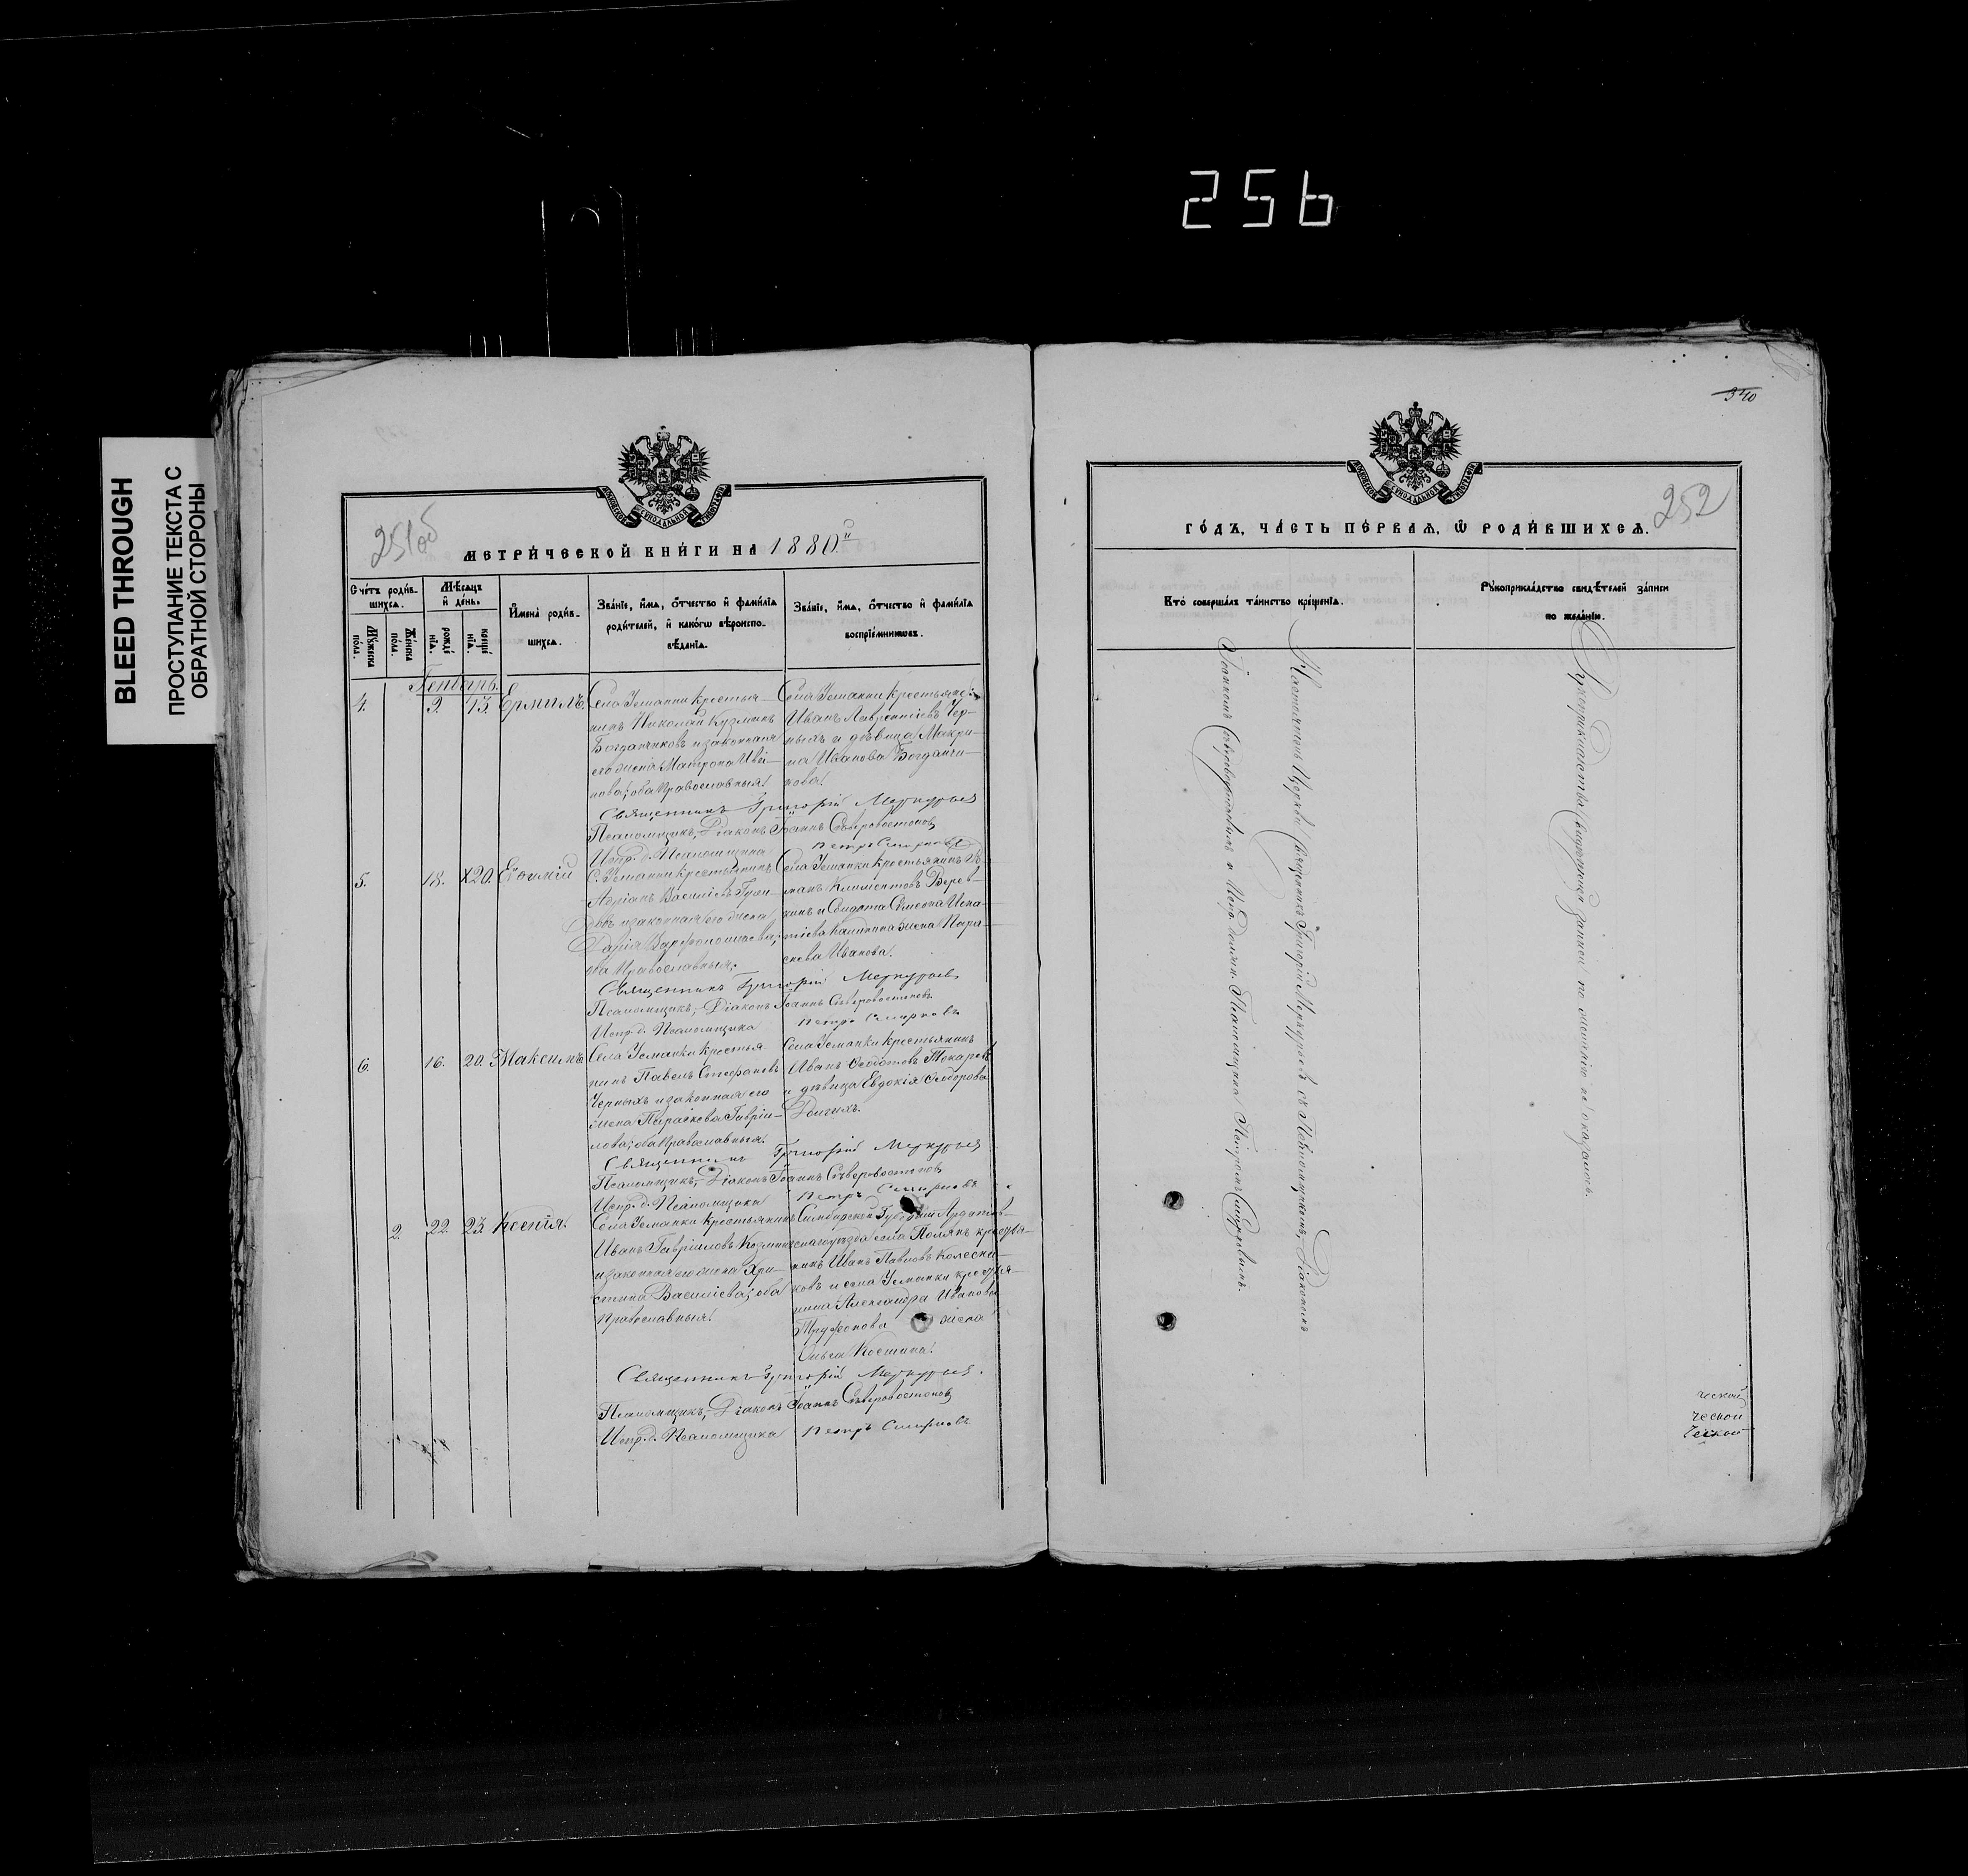 256
BLEED THROUGH
ПРОСТУПАНИЕ ТЕКСТА С
ОБРАТНОЙ СТОРОНЫ
251об
МЕТРИЧЕСКОЙ КНИГИ НА 1880.й
Счетъ родив-
шихся.
Мужеска пола.
Женска пола.
Мѣсяцъ и день.
рожденія.
крещенія.
Имена родив-
шихся.
Званіе, имя, отчество и фамилія
родителей, и какогѡ вѣроиспо-
вѣданія.
Званіе, имя, отчество и фамилія
воспріемниковъ.
Генварь.
4. 9. 13. Ермилъ.
Села Усманки крестья-
нинъ Николай Кузминъ
Богданчиковъ и законная
его жена Матрона Ива-
нова; оба Православныя.
Села Усманки крестьяне:
Иванъ Лаврентіевъ Чер-
ныхъ и дѣвица Макри-
на Иванова Богданчи-
кова.
Священникъ Григорій Меркурьев
Псаломщикъ, Діаконъ Іоаннъ Сѣверовостоков
Испр. д. Псаломщика Петръ Смирновъ
5. 18. 20. Евѳимій
С. Усманки крестьянинъ
Адріанъ Василіевъ
и законная его жена
Дарія Варфоломеева;
оба Православныя.
Села Усманки крестьянинъ
Климентовъ Верев-
кинъ и Солдата Симеона Игна-
тіева Калинина жена Пара-
скева Иванова.
Священникъ Григорій Меркурьев
Псаломщикъ, Діаконъ Іоаннъ Сѣверовостоковъ
Испр. д. Псаломщика Петръ Смирновъ
6. 16. 20. Максимъ
Села Усманки крестья-
нинъ Павелъ Стефановъ
Черныхъ и законная его
жена Параскева Гаврии-
лова; оба Православныя.
Села Усманки крестьянинъ
Иванъ Ѳедотовъ Токаревъ
и дѣвица Евдокія Ѳеодорова
Долгихъ.
Священникъ Григорій Меркурьев
Псаломщикъ, Діаконъ Іоаннъ Сѣверовостоков
Испр. д. Псаломщика Петръ Смирновъ
2. 22. 23. Ксенія.
Села Усманки крестьянинъ
Иванъ Гаврииловъ Козминъ
и законная его жена Хри-
стина Василіева; оба
Православныя.
Симбирской Губерніи Ардатов-
скаго уѣзда села Полянъ крестья-
нинъ Иванъ Павловъ Колесни-
ковъ и села Усманки крестья-
нина Александра Иванова
Труфонова жена
Костина.
Священникъ Григорій Меркурьев.
Псаломщикъ, Діаконъ Іоаннъ Сѣверовостоков
Испр. д. Псаломщика Петръ Смирновъ
340
252
ГОДЪ, ЧАСТЬ ПЕРВАЯ, Ѡ РОДИВШИХСЯ.
Кто совершалъ таинство крещенія.
Рукоприкладство свидѣтелей записи
по желанію.
Настоятель Церкви Священникъ Григорій Меркурьевъ съ Псаломщикомъ, Діакономъ
Іоанномъ Сѣверовостоковымъ и Испр. должн. Псаломщика Петромъ Смирновымъ.
Рукоприкладства записи по желанію не оказалось.
ческой
ческой
ческой